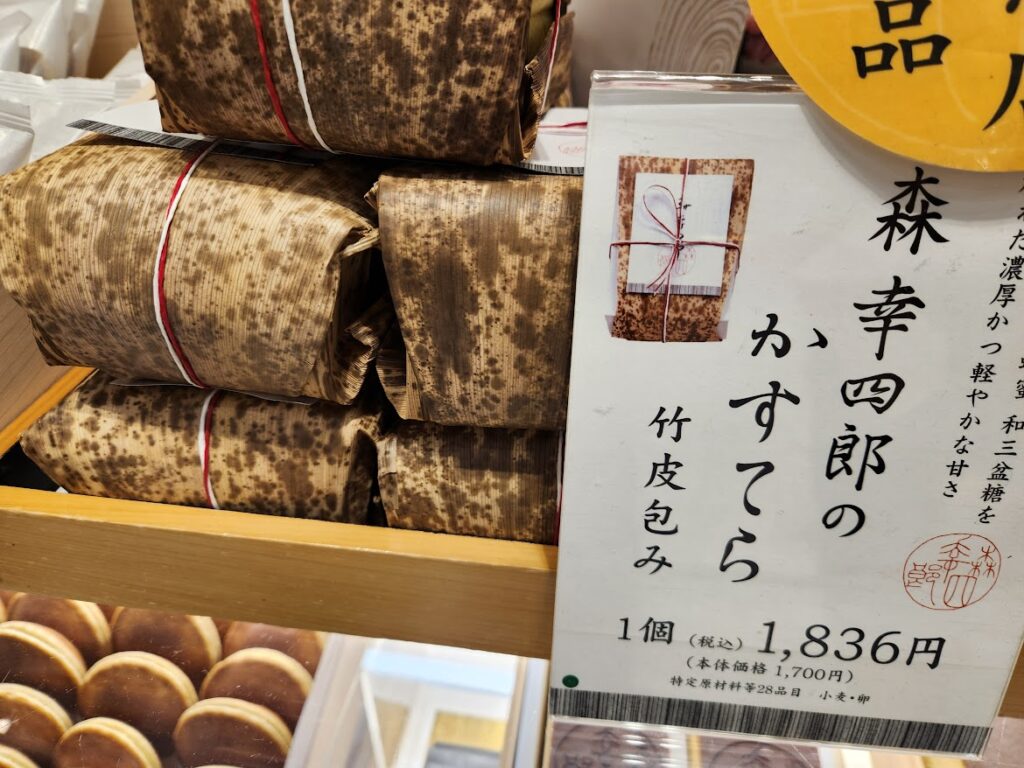 品
だ濃厚かつ軽やかな甘さ
和三盆糖を
森 幸四郎の
かすてら
竹皮包み
森幸四郎
1個 (税込) 1,836円
(本体価格 1,700円)
特定原材料等28品目 小麦・卵